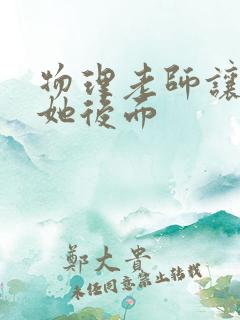 物理老師讓
她後而
鄭大貴
未经同意禁止转载